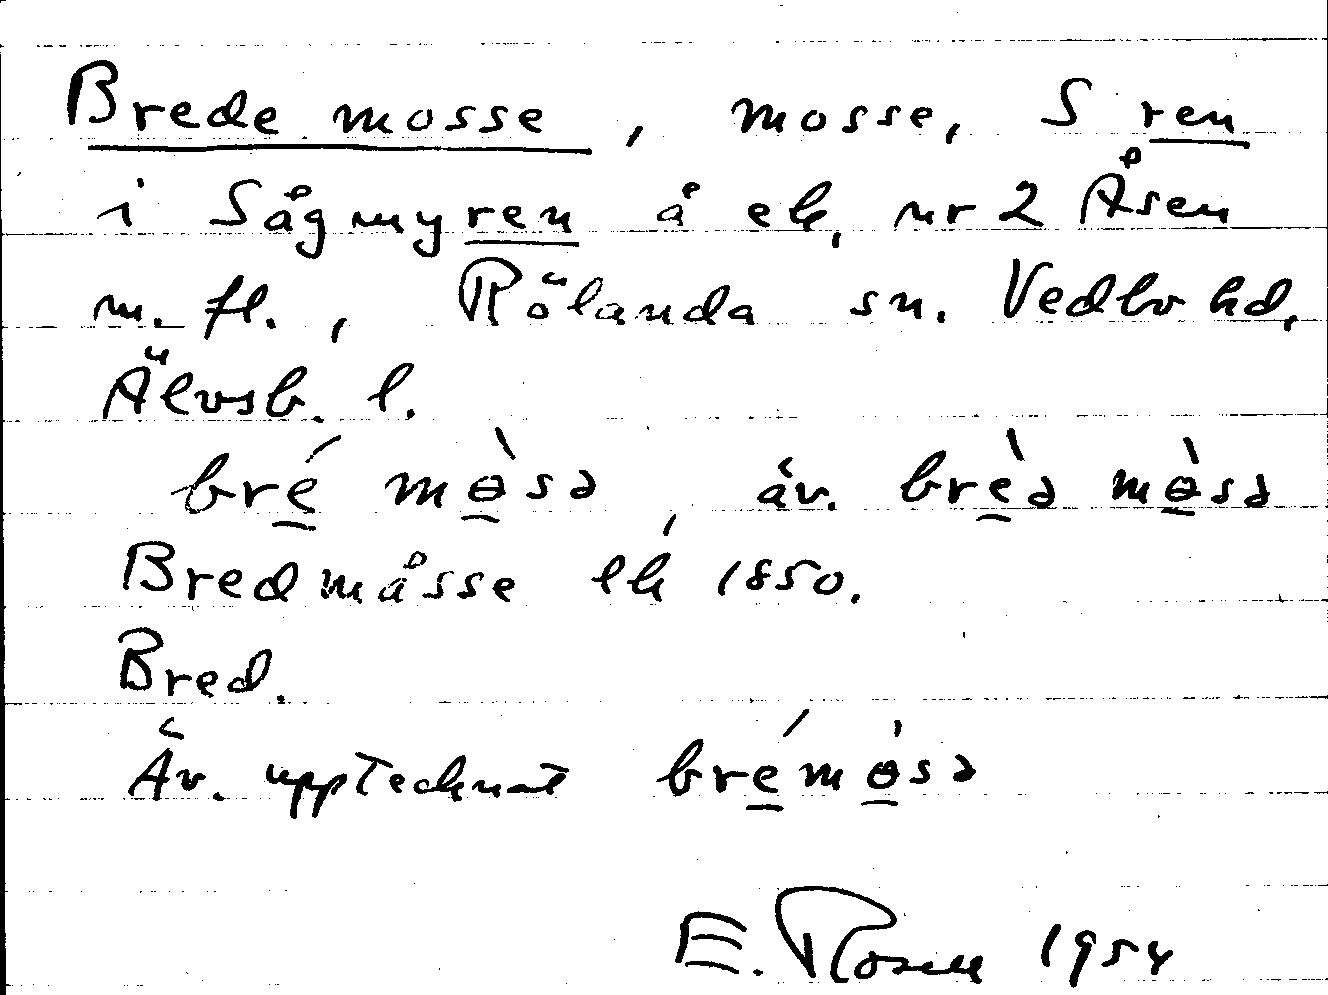 Brede mosse, mosse, S ren
i Sågmyren å ek. nr 2 Åsen
m. fl., Rölanda sn. Vedbo hd,
Älvsb. l.
bré mɵ̀sə, äv. brèə mɵ̀sə
Bredmåsse ek 1850.
Bred.
Äv. upptecknat brémɵ́sə
E. Rosell 1954